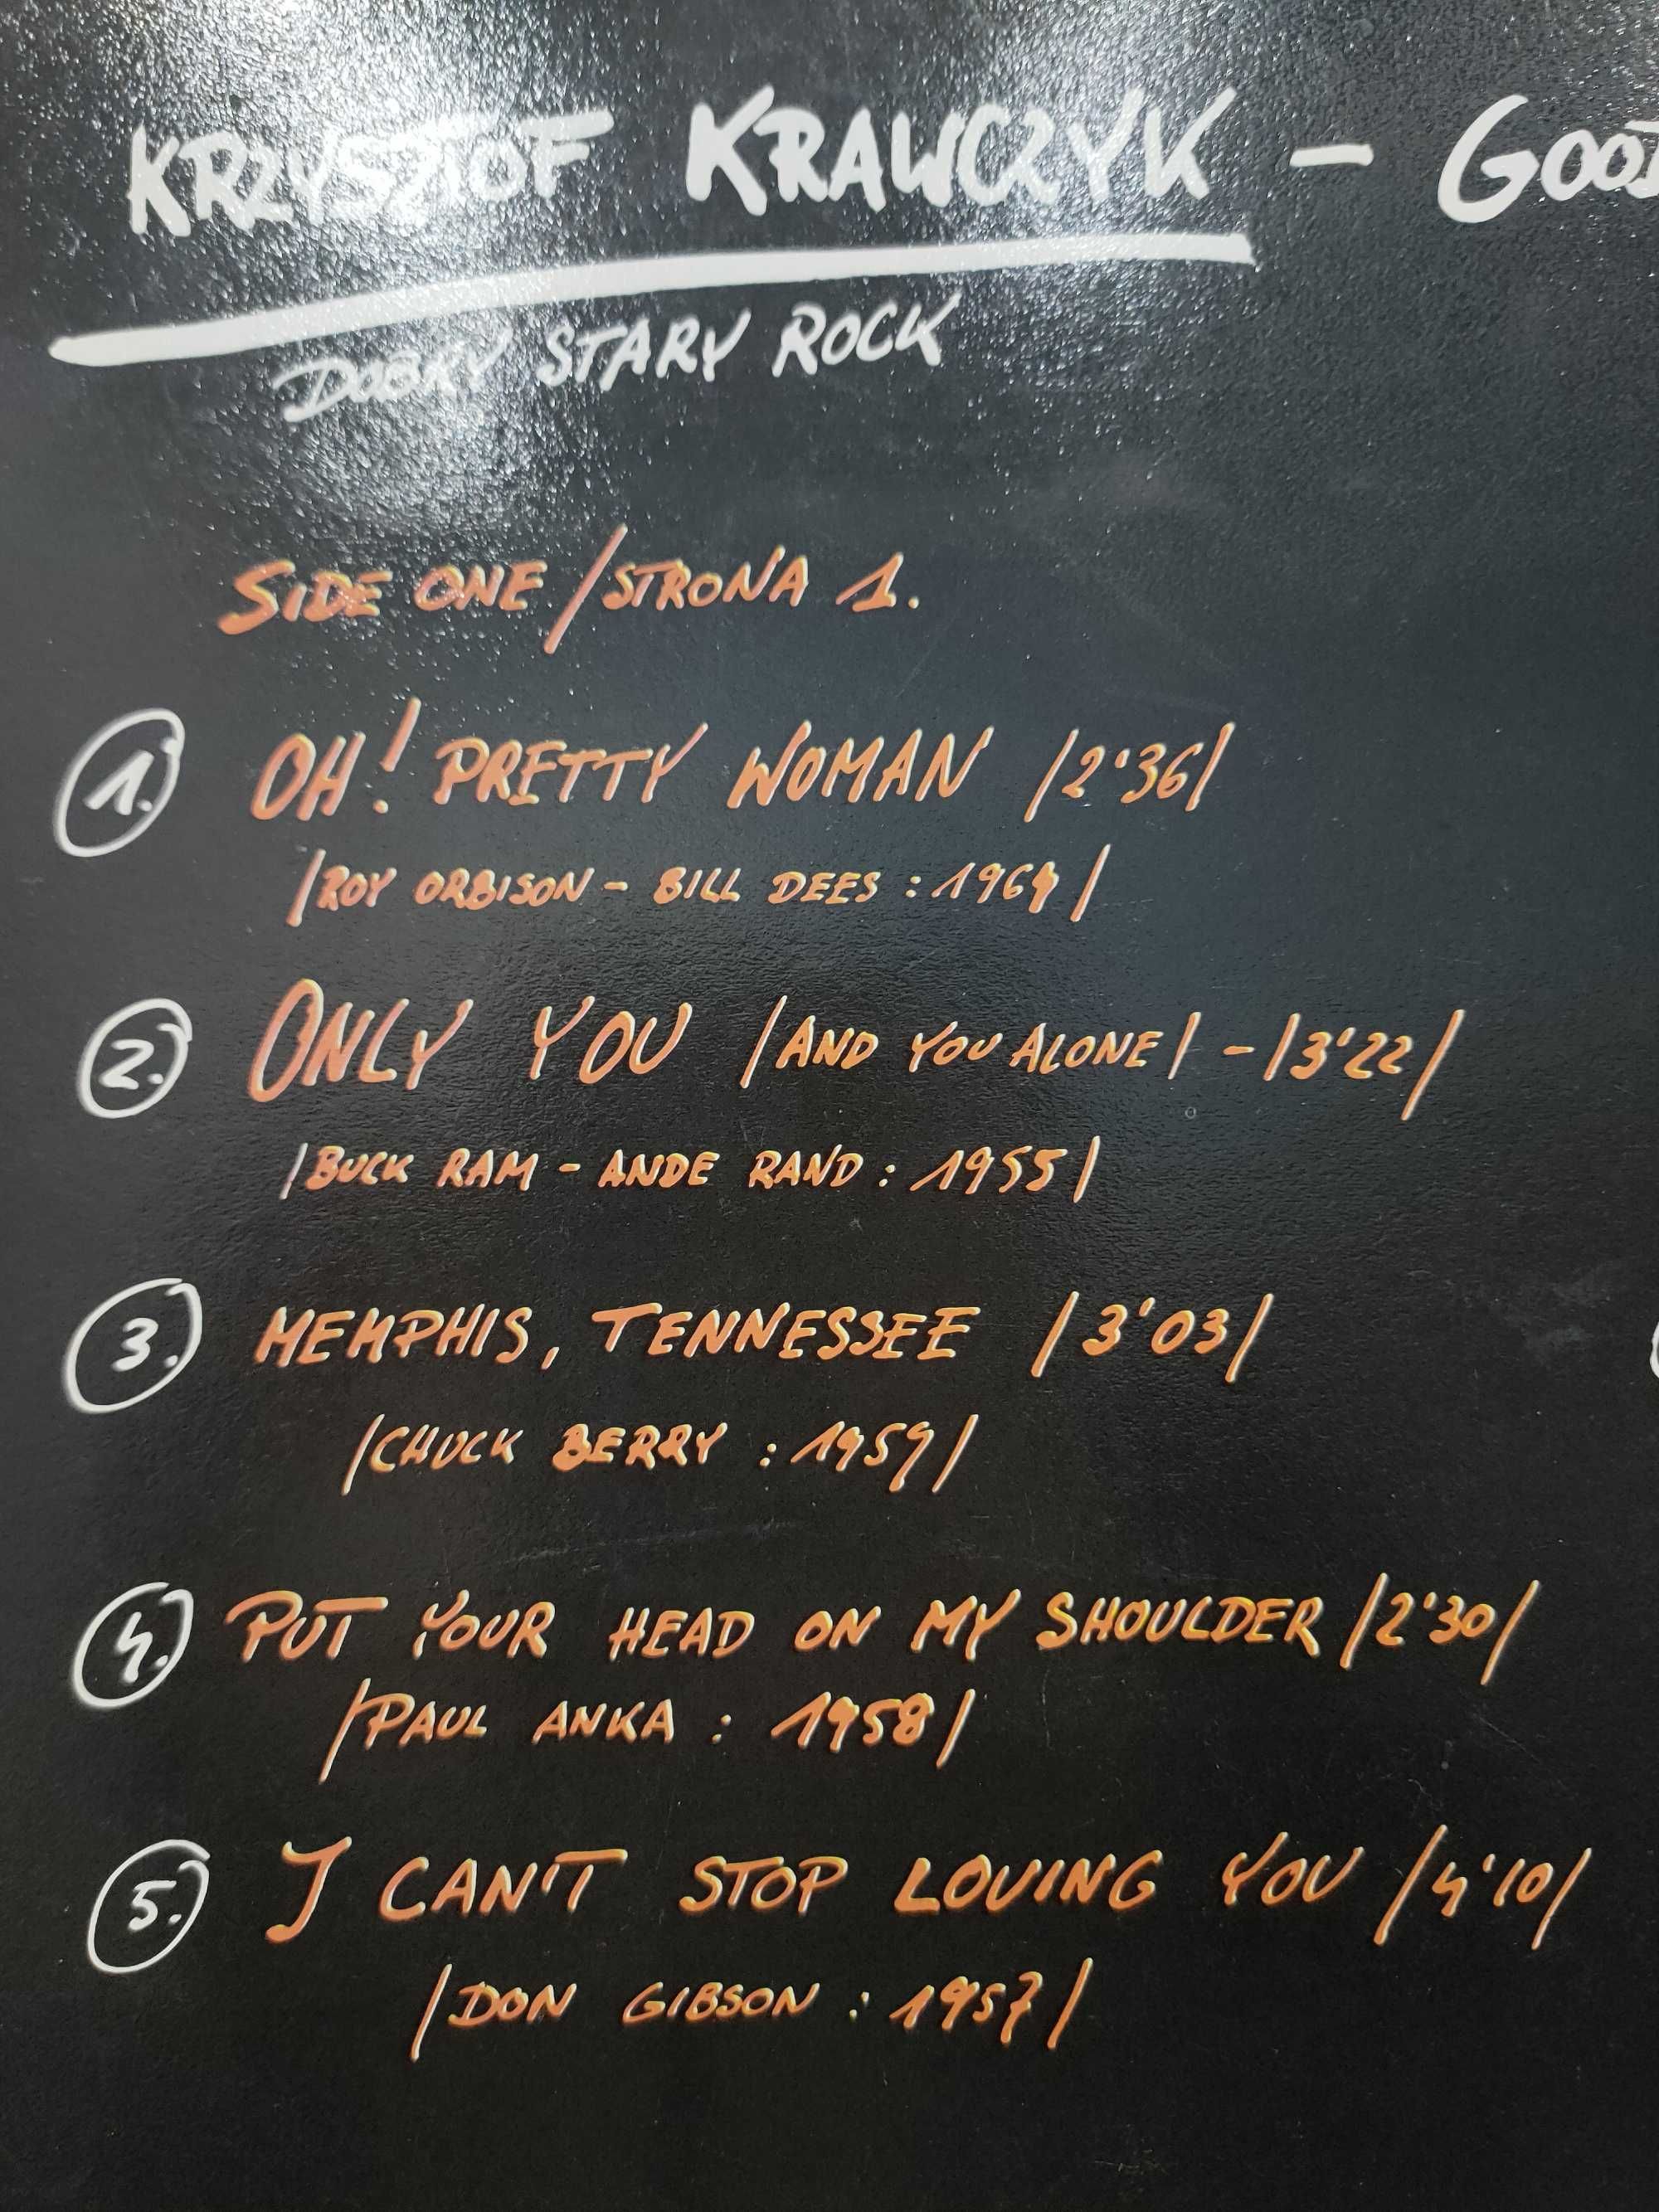 KRZYSZTOF KRAWCZYK – GOOD
DOBRY STARY ROCK
SIDE ONE /STRONA 1.
1. OH! PRETTY WOMAN /2'36/
/ROY ORBISON – BILL DEES : 1964/
2. ONLY YOU /AND YOU ALONE/ – /3'22/
/BUCK RAM – ANDE RAND : 1955/
3. MEMPHIS, TENNESSEE /3'03/
/CHUCK BERRY : 1959/
4. PUT YOUR HEAD ON MY SHOULDER /2'30/
/PAUL ANKA : 1958/
5. I CAN'T STOP LOVING YOU /4'10/
/DON GIBSON : 1957/